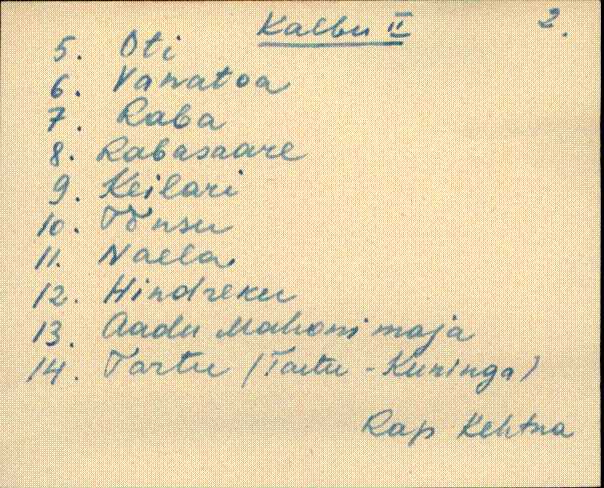 Kalbu II 2.
5. Oti
6. Vanatoa
7. Raba
8. Rabasaare
9. Keilari
10. Tõnsu
11. Naela
12. Hindreku
13. Aadu Mahoni maja
14. Tartu (Tartu - Kuninga)
Rap Kehtna